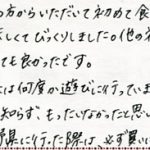 の方からいただいて初めて食
しくてびっくりしました。他の
ても良かったです。
には何度か遊びに行っていま
知らず、もったいなかったと思い
県に行った際は、必ず買い